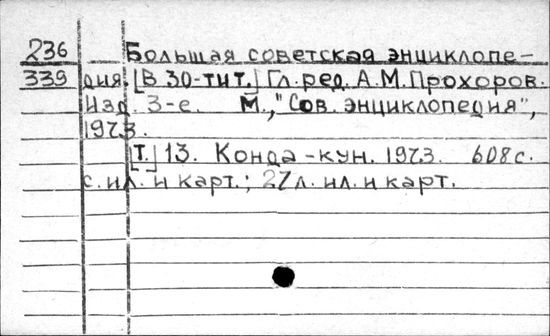 236 Большая советская энциклопе-
339 дия. [В 30-ти т.] Гл. ред. А.М.Прохоров.
Изд. 3-е. М., "Сов. энциклопедия",
1973.
[Т.] 13. Конда-кун. 1973. 608 с.
с. ил. и карт.; 27 л. ил. и карт.